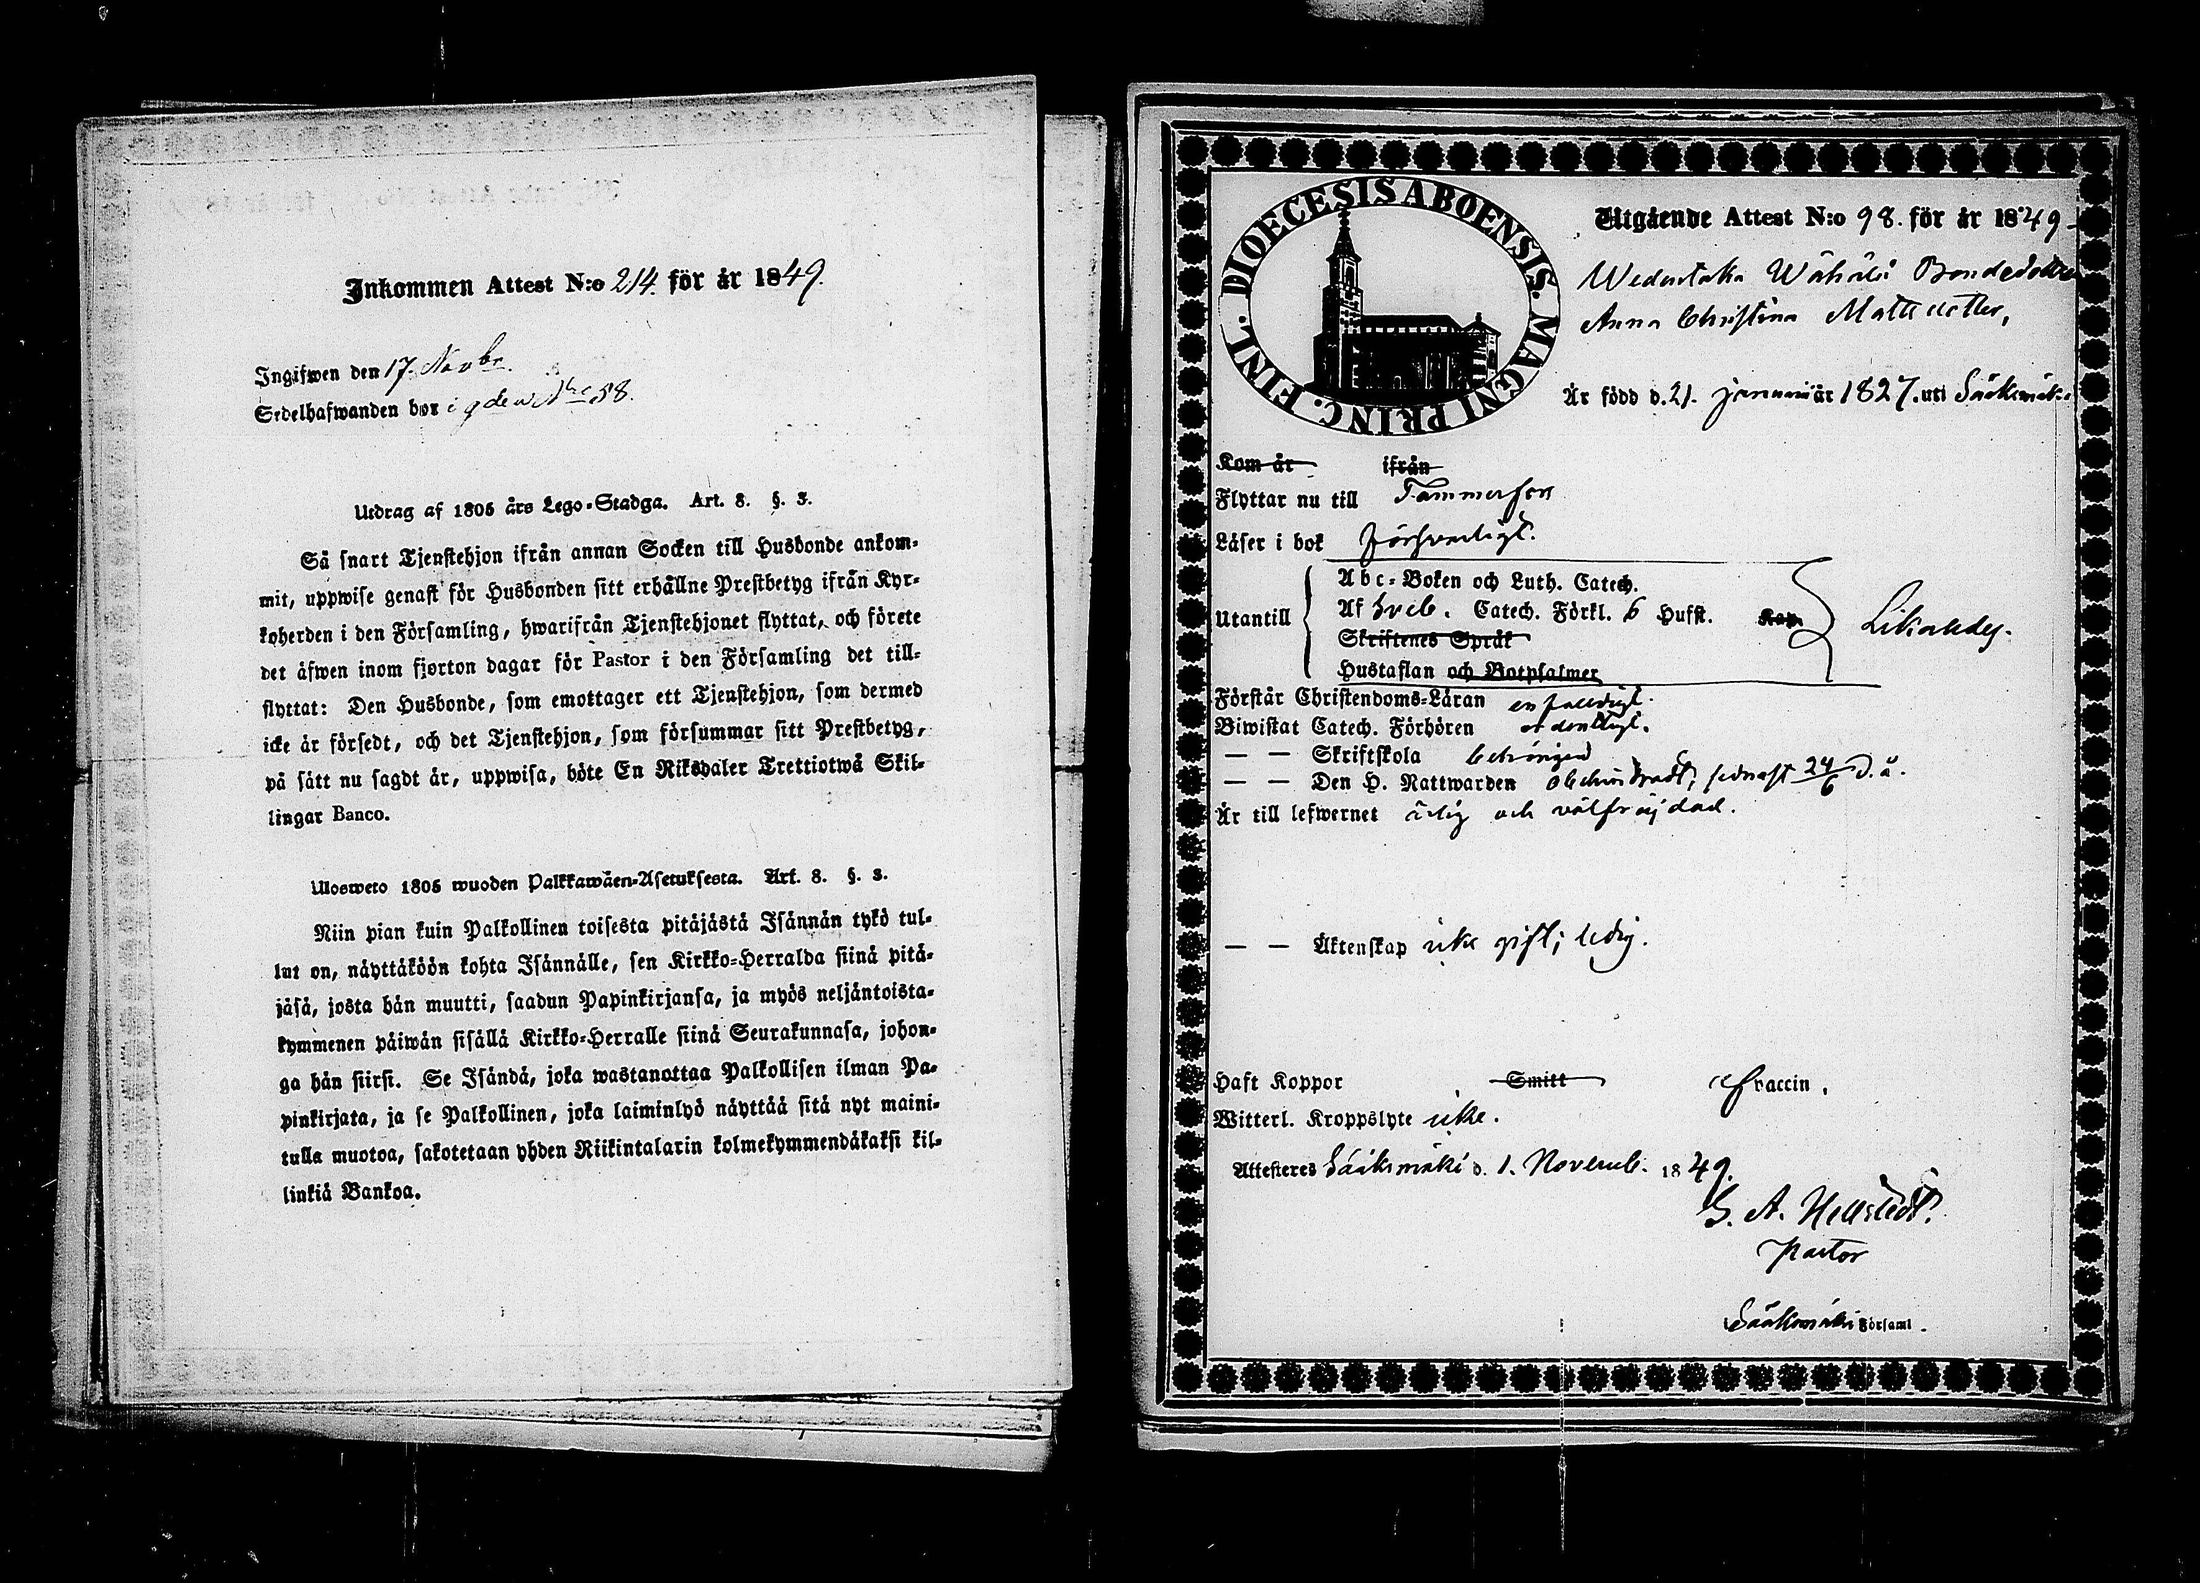 Inkommen Attest N:o 214. för år 1849.
Ingifwen den 17. Novbr.
Sedelhafwanden bor i
Utdrag af 1805 års Lego-Stadga. Art. 8. §. 3.
Så snart Tjenstehjon ifrån annan Socken till Husbonde ankom-
mit, uppwise genast för Husbonden sitt erhållne Prestbetyg ifrån Kyr-
koherden i den Församling, hwarifrån Tjenstehjonet flyttat, och förete
det äfwen inom fjorton dagar för Pastor i den Församling det till-
flyttat: Den Husbonde, som emottager ett Tjenstehjon, som dermed
icke är försedt, och det Tjenstehjon, som försummar sitt Prestbetyg,
på sätt nu sagdt är, uppwisa, böte En Riksdaler Trettiotwå Skil-
lingar Banco.
Ulosweto 1805 wuoden Palkkawäen-Asetuksesta. Art. 8. §. 3.
Niin pian kuin Palkollinen toisesta pitäjästä Isännän tykö tul-
lut on, näyttäköön kohta Isännälle, sen Kirkko-Herralda siinä pitä-
jäsä, josta hän muutti, saadun Papinkirjansa, ja myös neljäntoista-
kymmenen päiwän sisällä Kirkko-Herralle siinä Seurakunnasa, johon-
ga hän siirsi. Se Isändä, joka wastanottaa Palkollisen ilman Pa-
pinkirjata, ja se Palkollinen, joka laiminlyö näyttää sitä nyt maini-
tulla muotoa, sakotetaan yhden Riikintalarin kolmekymmendäkaksi kil-
linkiä Bankoa.
DIOECESIS ABOENSIS. MAGNI PRINC. FINL.
Utgående Attest N:o 98. för år 1849
Wedentaka Wähälä Bondedotter
Anna Christina Mattsdotter,
Är född d. 21. januari år 1827. uti Sääksmäki
Kom år ifrån
Flyttar nu till Tammerfors
Läser i bok försvarligt.
Abc-Boken och Luth. Catech.
Utantill Af Sveb. Catech. Förkl. 6 Hufst. Kap. Likaledes.
Skriftenes Språk
Hustaflan och Botpsalmer
Förstår Christendoms-Läran enfaldigt.
Biwistat Catech. Förhören ordentligt.
— — Skriftskola behörigen
— — Den H. Nattwarden obehindradt, sednast 24/6 d. å.
Är till lefwernet ärlig och välfräjdad.
— — Äktenskap icke gift; ledig.
Haft Koppor Smitt Vaccin.
Witterl. Kroppslyte icke.
Attesteras Sääksmäki d. 1. Novemb. 1849.
G. A. Hellstedt.
Pastor
Sääksmäki Församl.